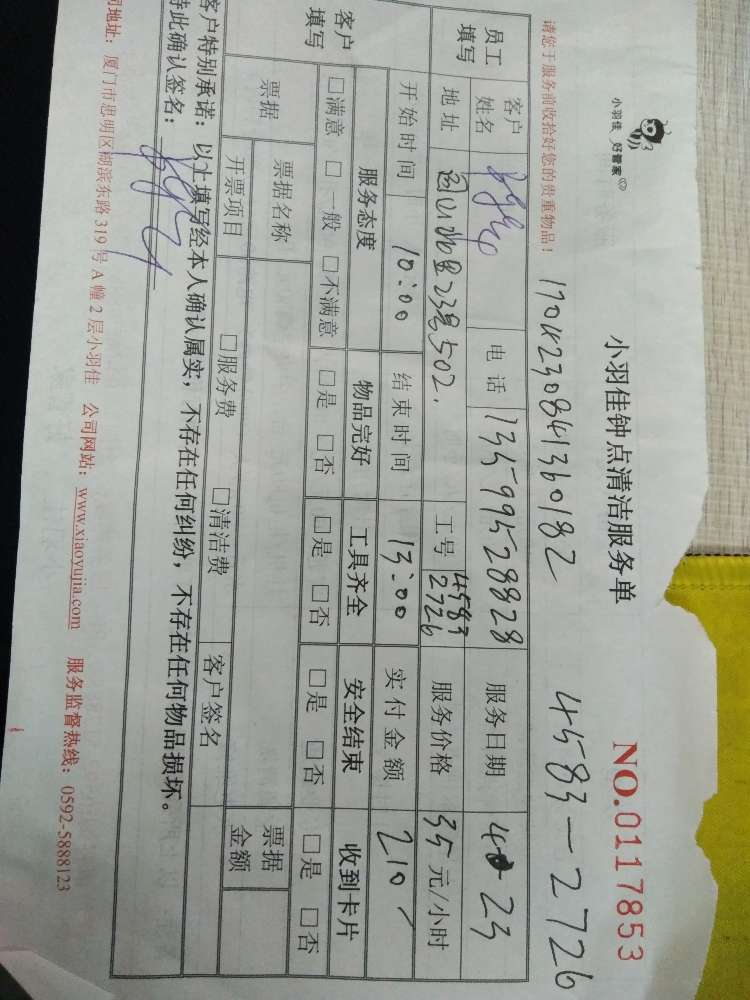 小羽佳 好管家
小羽佳钟点清洁服务单
NO.0117853
请您于服务前收拾好您的贵重物品!
1704230841360182 4583-2726
员工填写 客户姓名 电话 13599528828 服务日期 4 23
地址 23号502. 工号 4583 2726 服务价格 35 元/小时
开始时间 10:00 结束时间 13:00 实付金额 210
客户填写 服务态度 物品完好 工具齐全 安全结束 收到卡片
□满意 □一般 □不满意 □是 □否 □是 □否 □是 □否 □是 □否
票据 票据名称 票据金额
开票项目 □服务费 □清洁费 客户签名
客户特别承诺:以上填写经本人确认属实,不存在任何纠纷,不存在任何物品损坏。
特此确认签名:
司地址:厦门市思明区湖滨东路 319 号 A 幢 2 层小羽佳 公司网站:www.xiaoyujia.com 服务监督热线:0592-5888123